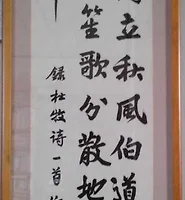 立秋風伯道
笙歌分散地
錄杜牧诗一首